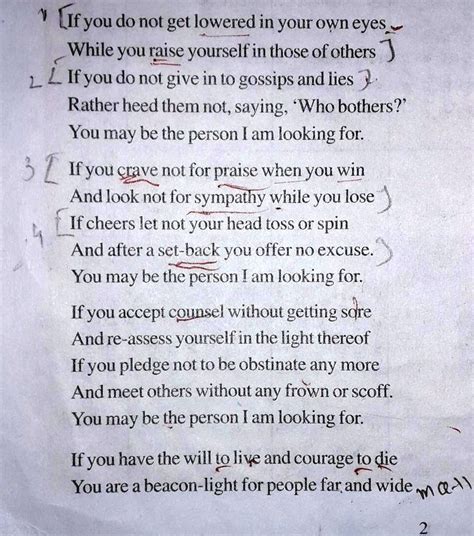 1 If you do not get lowered in your own eyes
While you raise yourself in those of others
2 If you do not give in to gossips and lies
Rather heed them not, saying, ‘Who bothers?’
You may be the person I am looking for.
3 If you crave not for praise when you win
And look not for sympathy while you lose
4 If cheers let not your head toss or spin
And after a set-back you offer no excuse.
You may be the person I am looking for.
If you accept counsel without getting sore
And re-assess yourself in the light thereof
If you pledge not to be obstinate any more
And meet others without any frown or scoff.
You may be the person I am looking for.
If you have the will to live and courage to die
You are a beacon-light for people far and wide
2